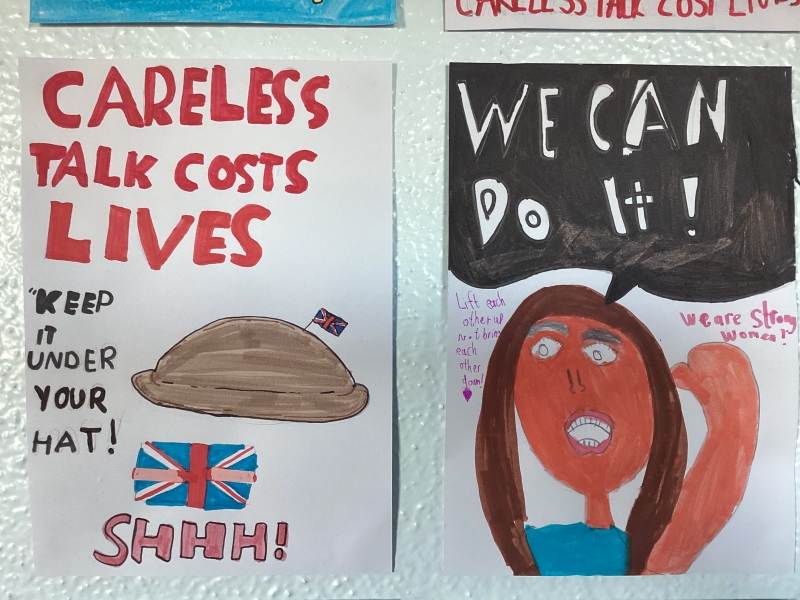 CARELESS TALK COST LIVES
CARELESS
TALK COSTS
LIVES
"KEEP
IT
UNDER
YOUR
HAT!
SHHH!
WE CAN
DO It!
Lift each
other up
not bring
each
other
down!
We are Strong
women!